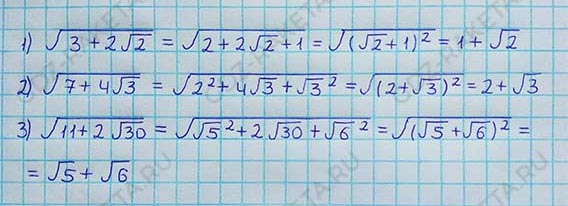 1) √(3 + 2√2) = √(2 + 2√2 + 1) = √((√2 + 1)²) = 1 + √2
2) √(7 + 4√3) = √(2² + 4√3 + √3²) = √((2 + √3)²) = 2 + √3
3) √(11 + 2√30) = √(√5² + 2√30 + √6²) = √((√5 + √6)²) =
= √5 + √6